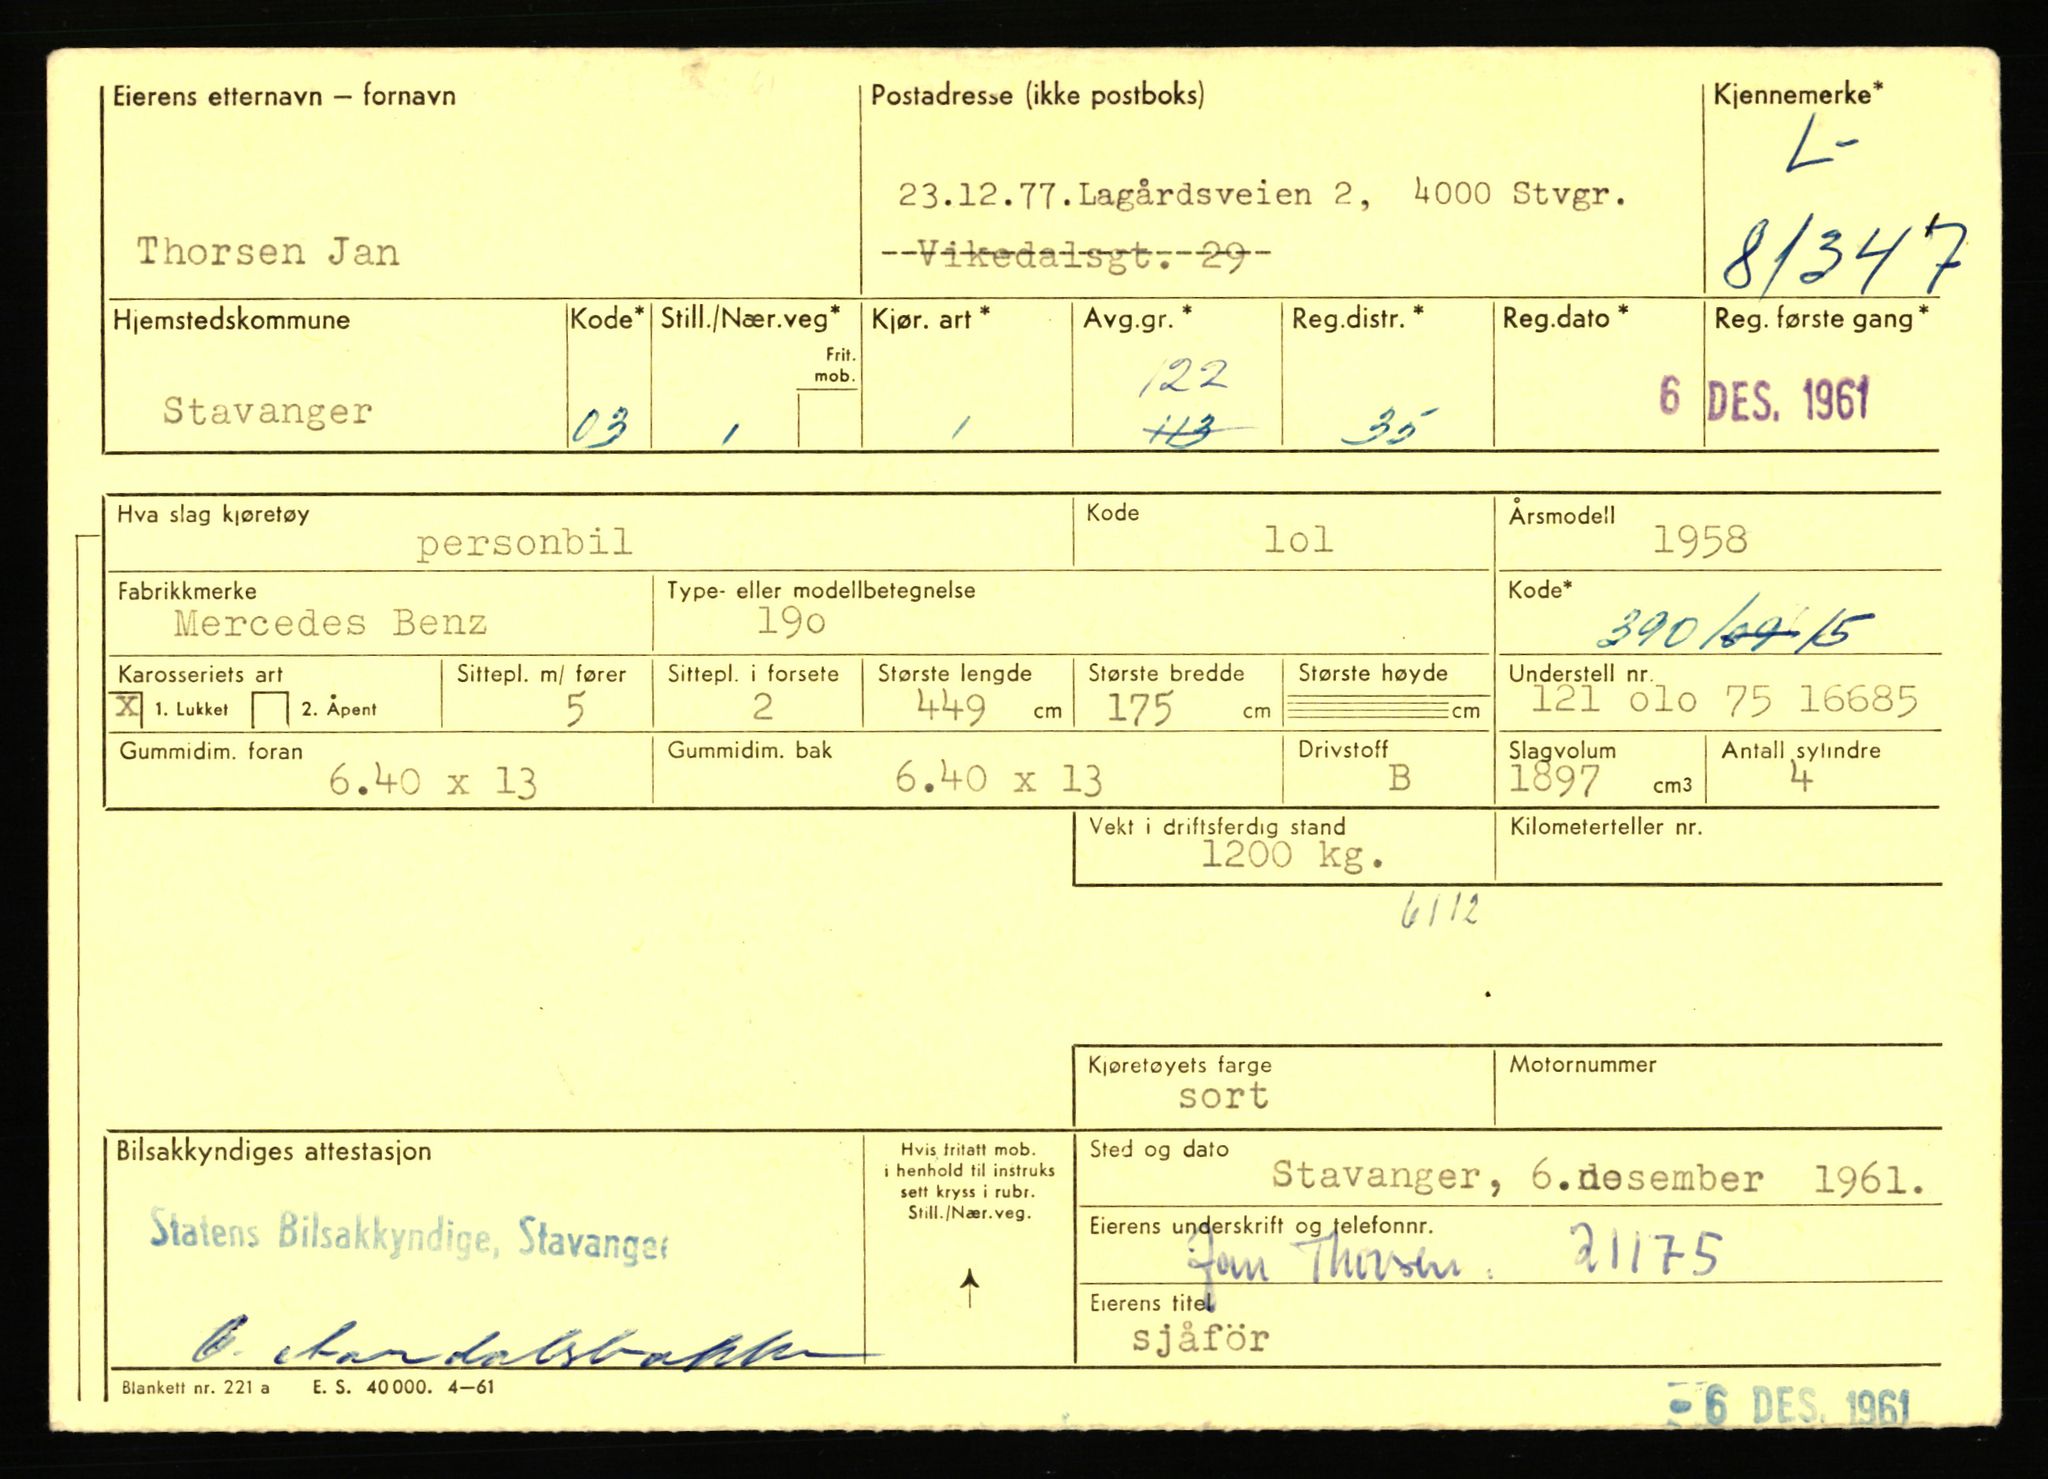 Eierens etternavn – fornavn Postadresse (ikke postboks) Kjennemerke*
L-
23.12.77.Lagårdsveien 2, 4000 Stvgr.
Thorsen Jan --Vikedalsgt. 29- 81347
Hjemstedskommune Kode* Still./Nær.veg* Kjør. art* Avg.gr.* Reg.distr.* Reg.dato* Reg. første gang*
Frit.
mob.
122
Stavanger 03 1 1 113 35 6 DES. 1961
Hva slag kjøretøy Kode Årsmodell
personbil lol 1958
Fabrikkmerke Type- eller modellbetegnelse Kode*
Mercedes Benz 19o 390/09/15
Karosseriets art Sittepl. m/ fører Sittepl. i forsete Største lengde Største bredde Største høyde Understell nr.
X 1. Lukket 2. Åpent 5 2 449 cm 175 cm cm 121 olo 75 16685
Gummidim. foran Gummidim. bak Drivstoff Slagvolum Antall sylindre
6.40 x 13 6.40 x 13 B 1897 cm3 4
Vekt i driftsferdig stand Kilometerteller nr.
1200 kg.
6112
Kjøretøyets farge Motornummer
sort
Bilsakkyndiges attestasjon Hvis fritatt mob. Sted og dato
i henhold til instruks
sett kryss i rubr.
Still./Nær.veg.
Stavanger, 6.desember 1961.
Eierens underskrift og telefonnr.
Statens Bilsakkyndige, Stavanger Jan Thorsen. 21175
Eierens titel
sjåför
Blankett nr. 221 a E. S. 40 000. 4–61
-6 DES. 1961